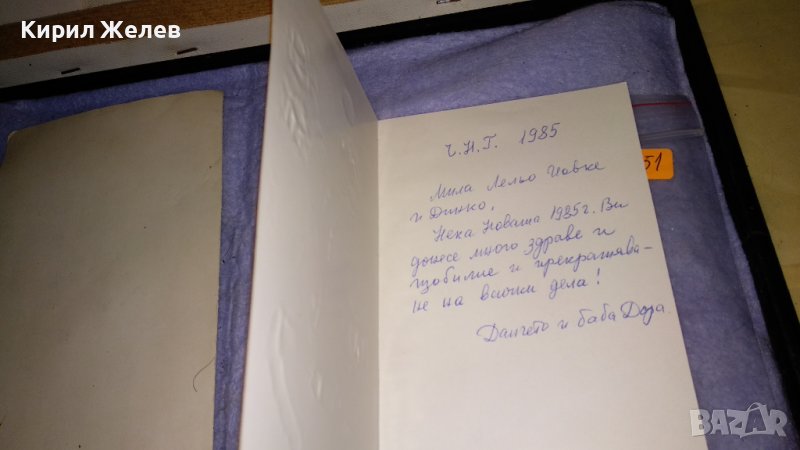 Кирил Желев
Ч.Н.Г. 1985
51
Мила Лельо Иовке
и Динко,
Нека Новата 1985г. Ви
донесе много здраве и
изобилие и прекратява-
не на всички дела!
Данчето и баба Деза.
BAZAR